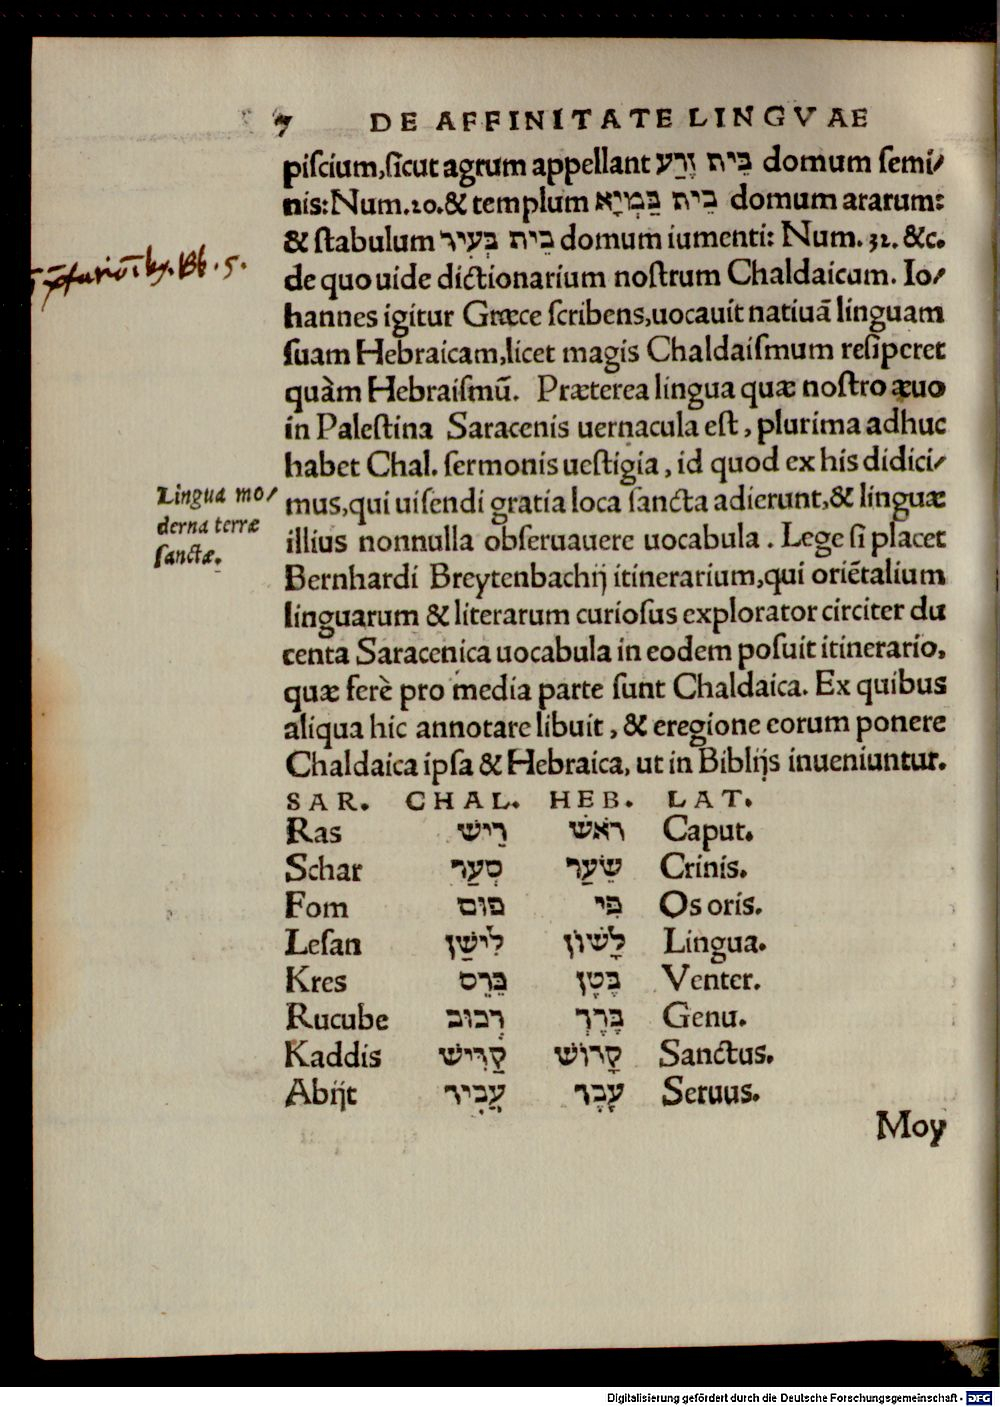 7 DE AFFINITATE LINGVAE
piſcium,ſicut agrum appellant בֵּית זֶרַע domum ſemi/
nis:Num.20.& templum בֵית בַּמְיָא domum ararum:
& ſtabulum בֵית בְּעִיר domum iumenti: Num. 31. &c.
de quo uide dictionarium noſtrum Chaldaicum. Io/
hannes igitur Græce ſcribens,uocauit natiuā linguam
ſuam Hebraicam,licet magis Chaldaiſmum reſiperet
quàm Hebraiſmū. Præterea lingua quæ noſtro æuo
in Paleſtina Saracenis uernacula eſt, plurima adhuc
habet Chal. ſermonis ueſtigia, id quod ex his didici/
Lingua mo/
derna terræ
ſanctæ.
mus,qui uiſendi gratia loca ſancta adierunt,& linguæ
illius nonnulla obſeruauere uocabula. Lege ſi placet
Bernhardi Breytenbachij itinerarium,qui oriētalium
linguarum & literarum curioſus explorator circiter du
centa Saracenica uocabula in eodem poſuit itinerario,
quæ ferè pro media parte ſunt Chaldaica. Ex quibus
aliqua hic annotare libuit, & eregione eorum ponere
Chaldaica ipſa & Hebraica, ut in Biblijs inueniuntur.
SAR. CHAL. HEB. LAT.
Ras רֵישׁ רֹאשׁ Caput.
Schar סְעַר שֵׂעַר Crinis.
Fom פום פִּי Os oris.
Leſan לִישַׁן לָשׁוֹן Lingua.
Kres כְּרֵס בֶּטֶן Venter.
Rucube רְכוּב בֶּרֶךְ Genu.
Kaddis קַדִּישׁ קָדוֹשׁ Sanctus.
Abijt עֲבִיד עֶבֶד Seruus.
Moy
Digitalisierung gefördert durch die Deutsche Forschungsgemeinschaft - DFG